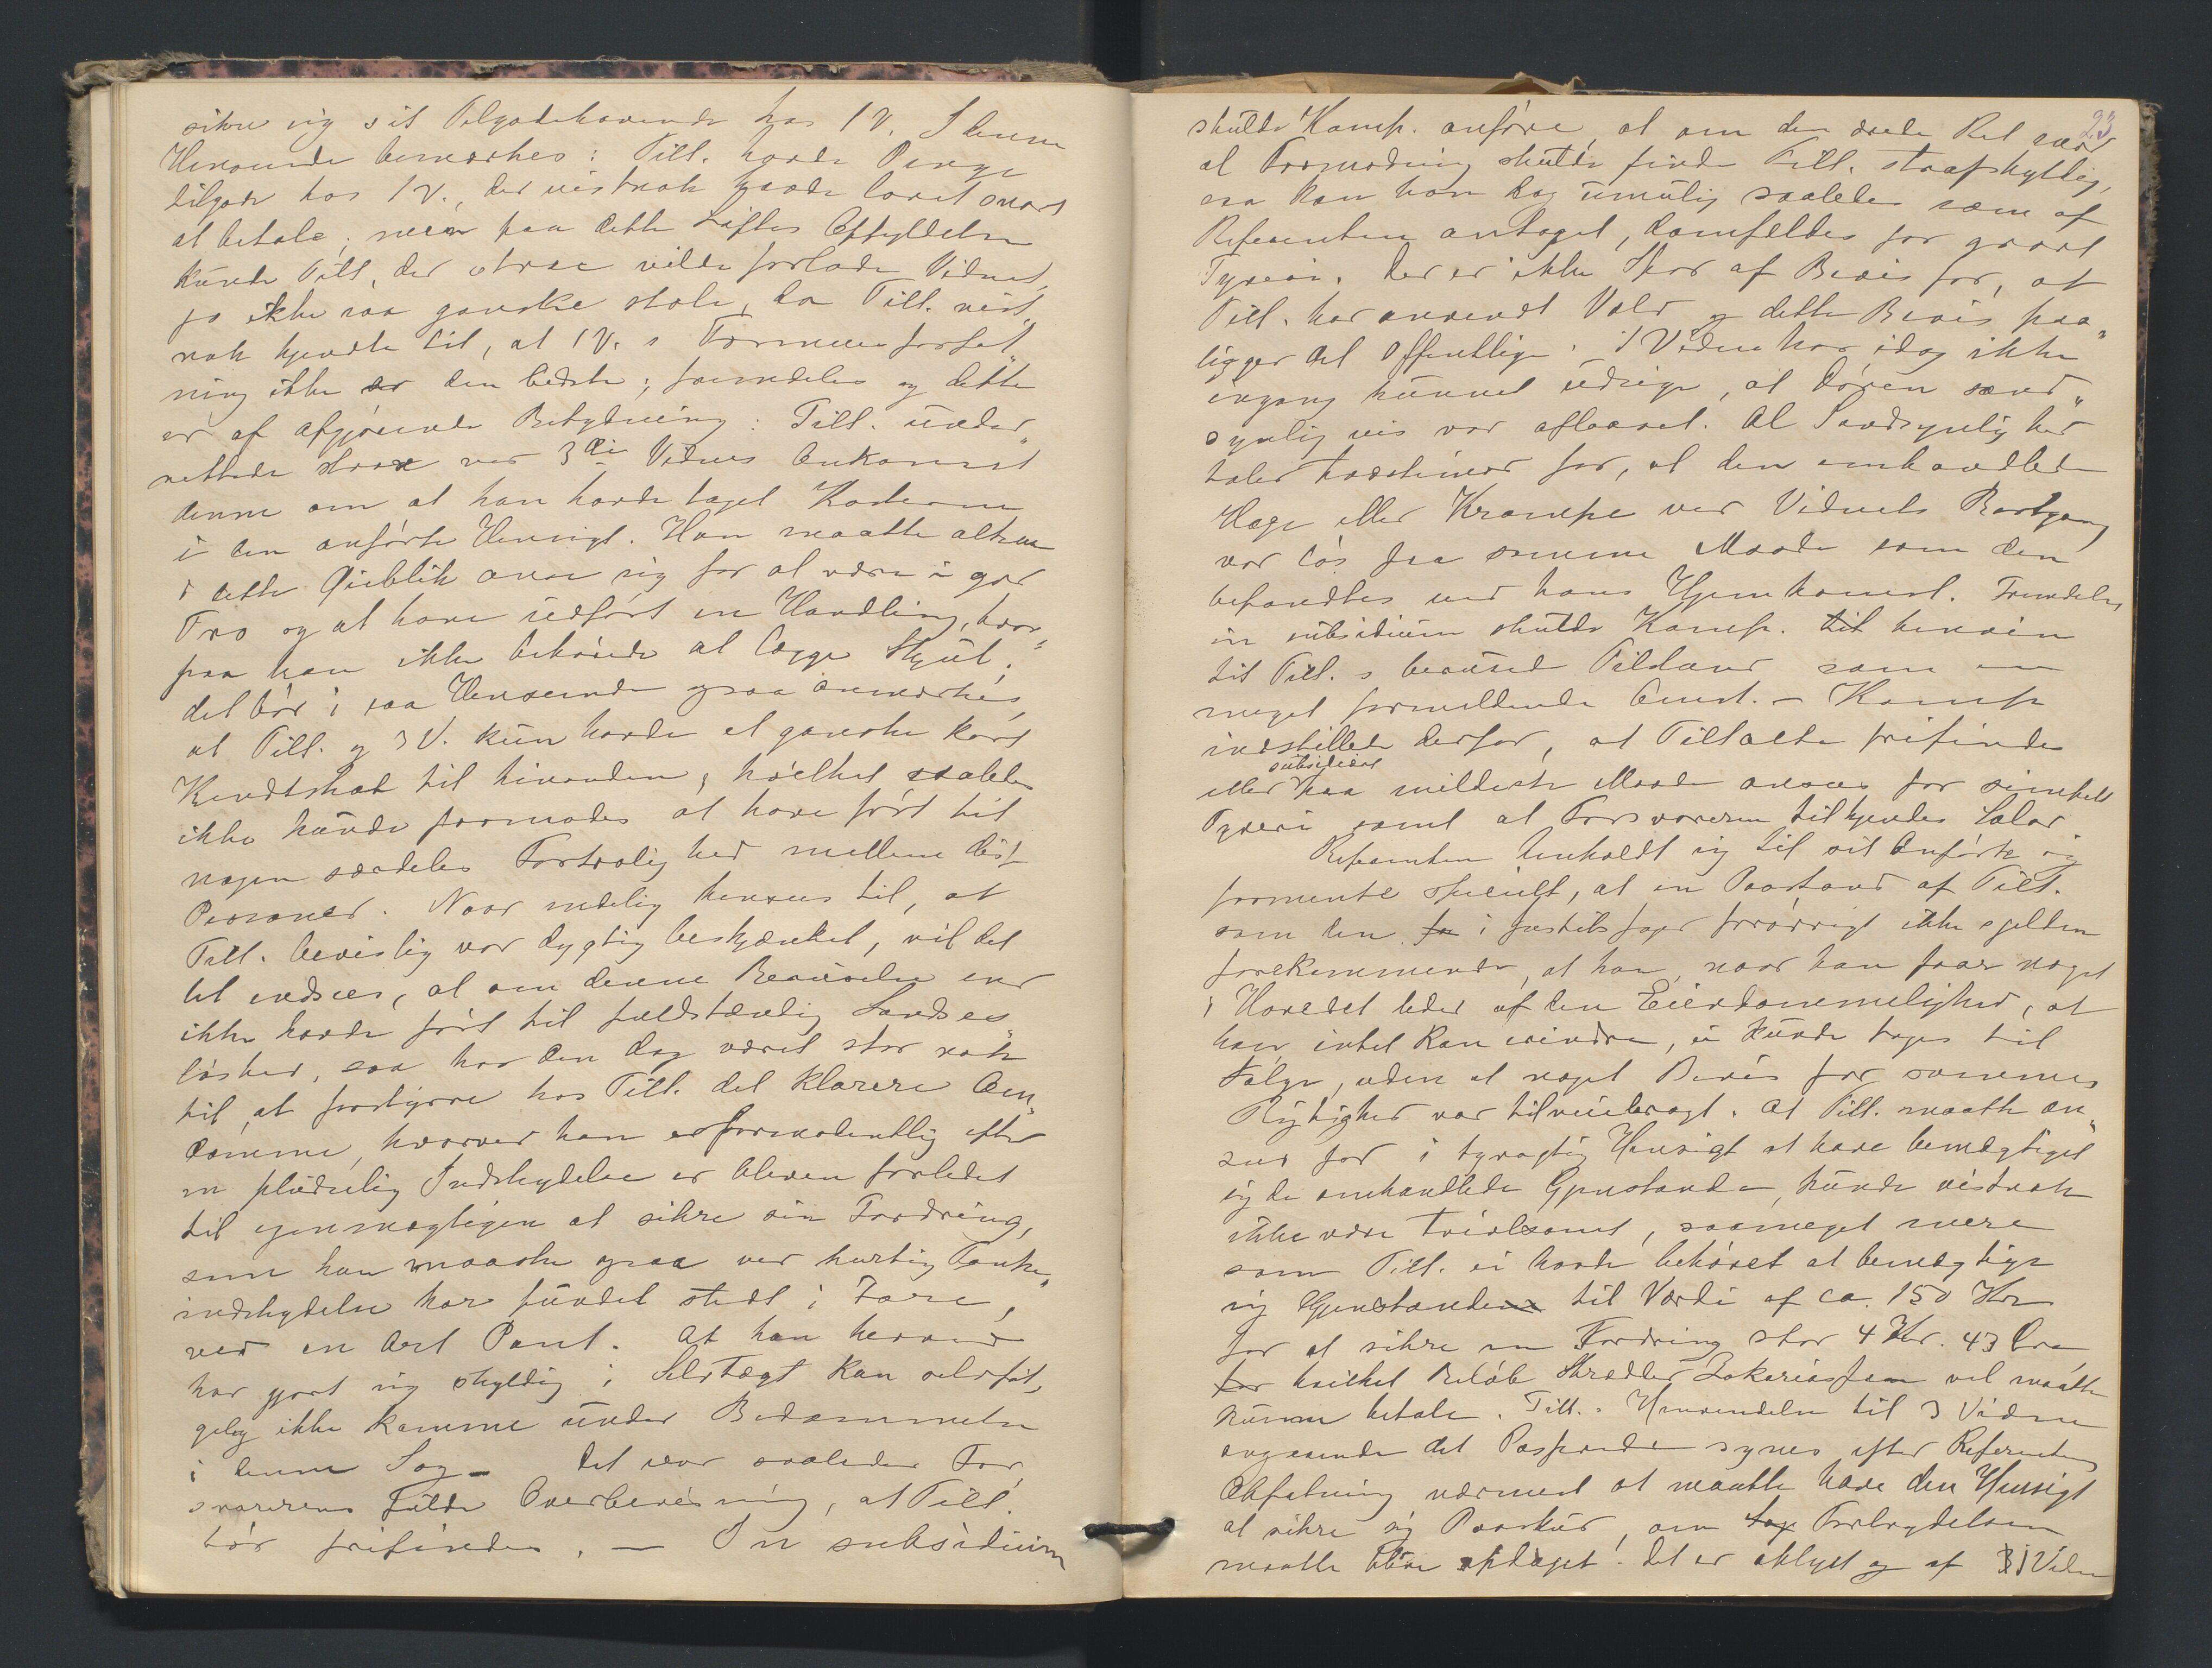 sikre sig sit Tilgodehavende hos 1 V. I denne
Henseende bemærkes: Tilt. havde Penge
tilgode hos 1 V., der vistnok havde lovet snart
at betale; men paa dette Løftes Opfyldelse
kunde Tilt., der strax vilde forlade Vidnet,
jo ikke saa ganske stole, da Tilt. vist„
nok kjendte til, at 1 V. s Formuesforfat„
ning ikke er den bedste; fremdeles og dette
er af afgjørende Betydning: Tilt. under„
rettede strax ved 3die Vidnes Ankomst
denne om at han havde taget
i den anførte Hensigt. Han maatte altsaa
i dette Øieblik anse sig for at være i god
Tro og at have udført en Handling, hvor„
paa han ikke behøvede at lægge Skjul;
det bør i saa Henseende ogsaa anmærkes,
at Tilt. og 3 V. kun havde et ganske kort
Kendskab til hinanden, hvilket saaledes
ikke kunde formodes at have ført til
nogen særdeles Fortrolighed mellem disse
Personer. Naar endelig henses til, at
Tilt. bevislig var dygtig beskjænket, vil det
let indsees, at om denne Beruselse end
ikke havde ført til fuldstændig Sandses„
løshed, saa har den dog været stor nok
til, at forstyrre hos Tilt. det klarere Om„
dømme, hvorved han formodentlig efter
en pludselig Indskydelse er bleven forledet
til egenmægtigen at sikre sin Fordring,
som han maaske ogsaa ved hurtig Tanke„
indskydelse har fundet stedt i Fare,
ved en Art Pant. At han herved
har gjort sig skyldig i Selvtægt kan selvføl„
gelig ikke komme under Bedømmelse
i denne Sag. – Det var saaledes For„
svarerens fulde Overbevisning, at Tilt.
bør frifindes. – In subsidium
23
skulde Komp. anføre, at om den ærede Ret mod
al Formodning skulde finde Tilt. strafskyldig,
saa kan han dog umulig saaledes som af
Referenten antaget, domfældes for groft
Tyveri. Der er ikke Spor af Bevis for, at
Tilt. har anvendt Vold og dette Bevis paa„
ligger det Offentlige. 1 Vidne har idag ikke
engang kunnet udsige, at Døren sand„
synlig vis var aflaaset. Al Sandsynlighed
taler tvertimod for, at den omhandlede
Hage eller Krampe ved Vidnets Bortgang
var løs paa samme Maade som den
befandtes ved hans Hjemkomst. Fremdeles
in subsidium skulde Komp. til henvise
til Tilt. s beruset Tilstand som en
meget formildende Omst. – Komp.
indstillede derfor, at Tiltalte frifindes
subsidiært
eller paa mildeste Maade ansees for simpelt
Tyveri samt at Forsvareren tilkjendes Salær.
Referenten henholdt sig til sit Anførte og
formente specielt, at en Paastand af Tilt.
som den i Justitssager forøvrigt ikke sjelden
forekommende, at han, naar han faar noget
i Hovedet lider af den Eiendommelighed, at
han intet kan erindre, ei kunde tages til
Følge, uden at noget Bevis for sammes
Rigtighed var tilveiebragt. At Tilt. maatte an„
sees for i tyvagtig Hensigt at have bemægtiget
sig de omhandlede Gjenstande, kunde vistnok
ikke være tvivlsomt, saameget mere
som Tilt. ei havde behøvet at bemægtige
sig Gjenstande til Værdi af ca. 150 Kr.
for at sikre en Fordring stor 4 Kr. 43 Øre
for hvilket Beløb Skrædder Zakariassen vel maatte
kunne betale. Tilt. s Henvendelse til 3 Vidne
angaaende det Passerede synes efter Referentens
Opfatning nærmest at maatte have den Hensigt
at sikre sig Paaskud, om Forbrydelsen
maatte blive opdaget. Det er oplyst og af 1 Vidne